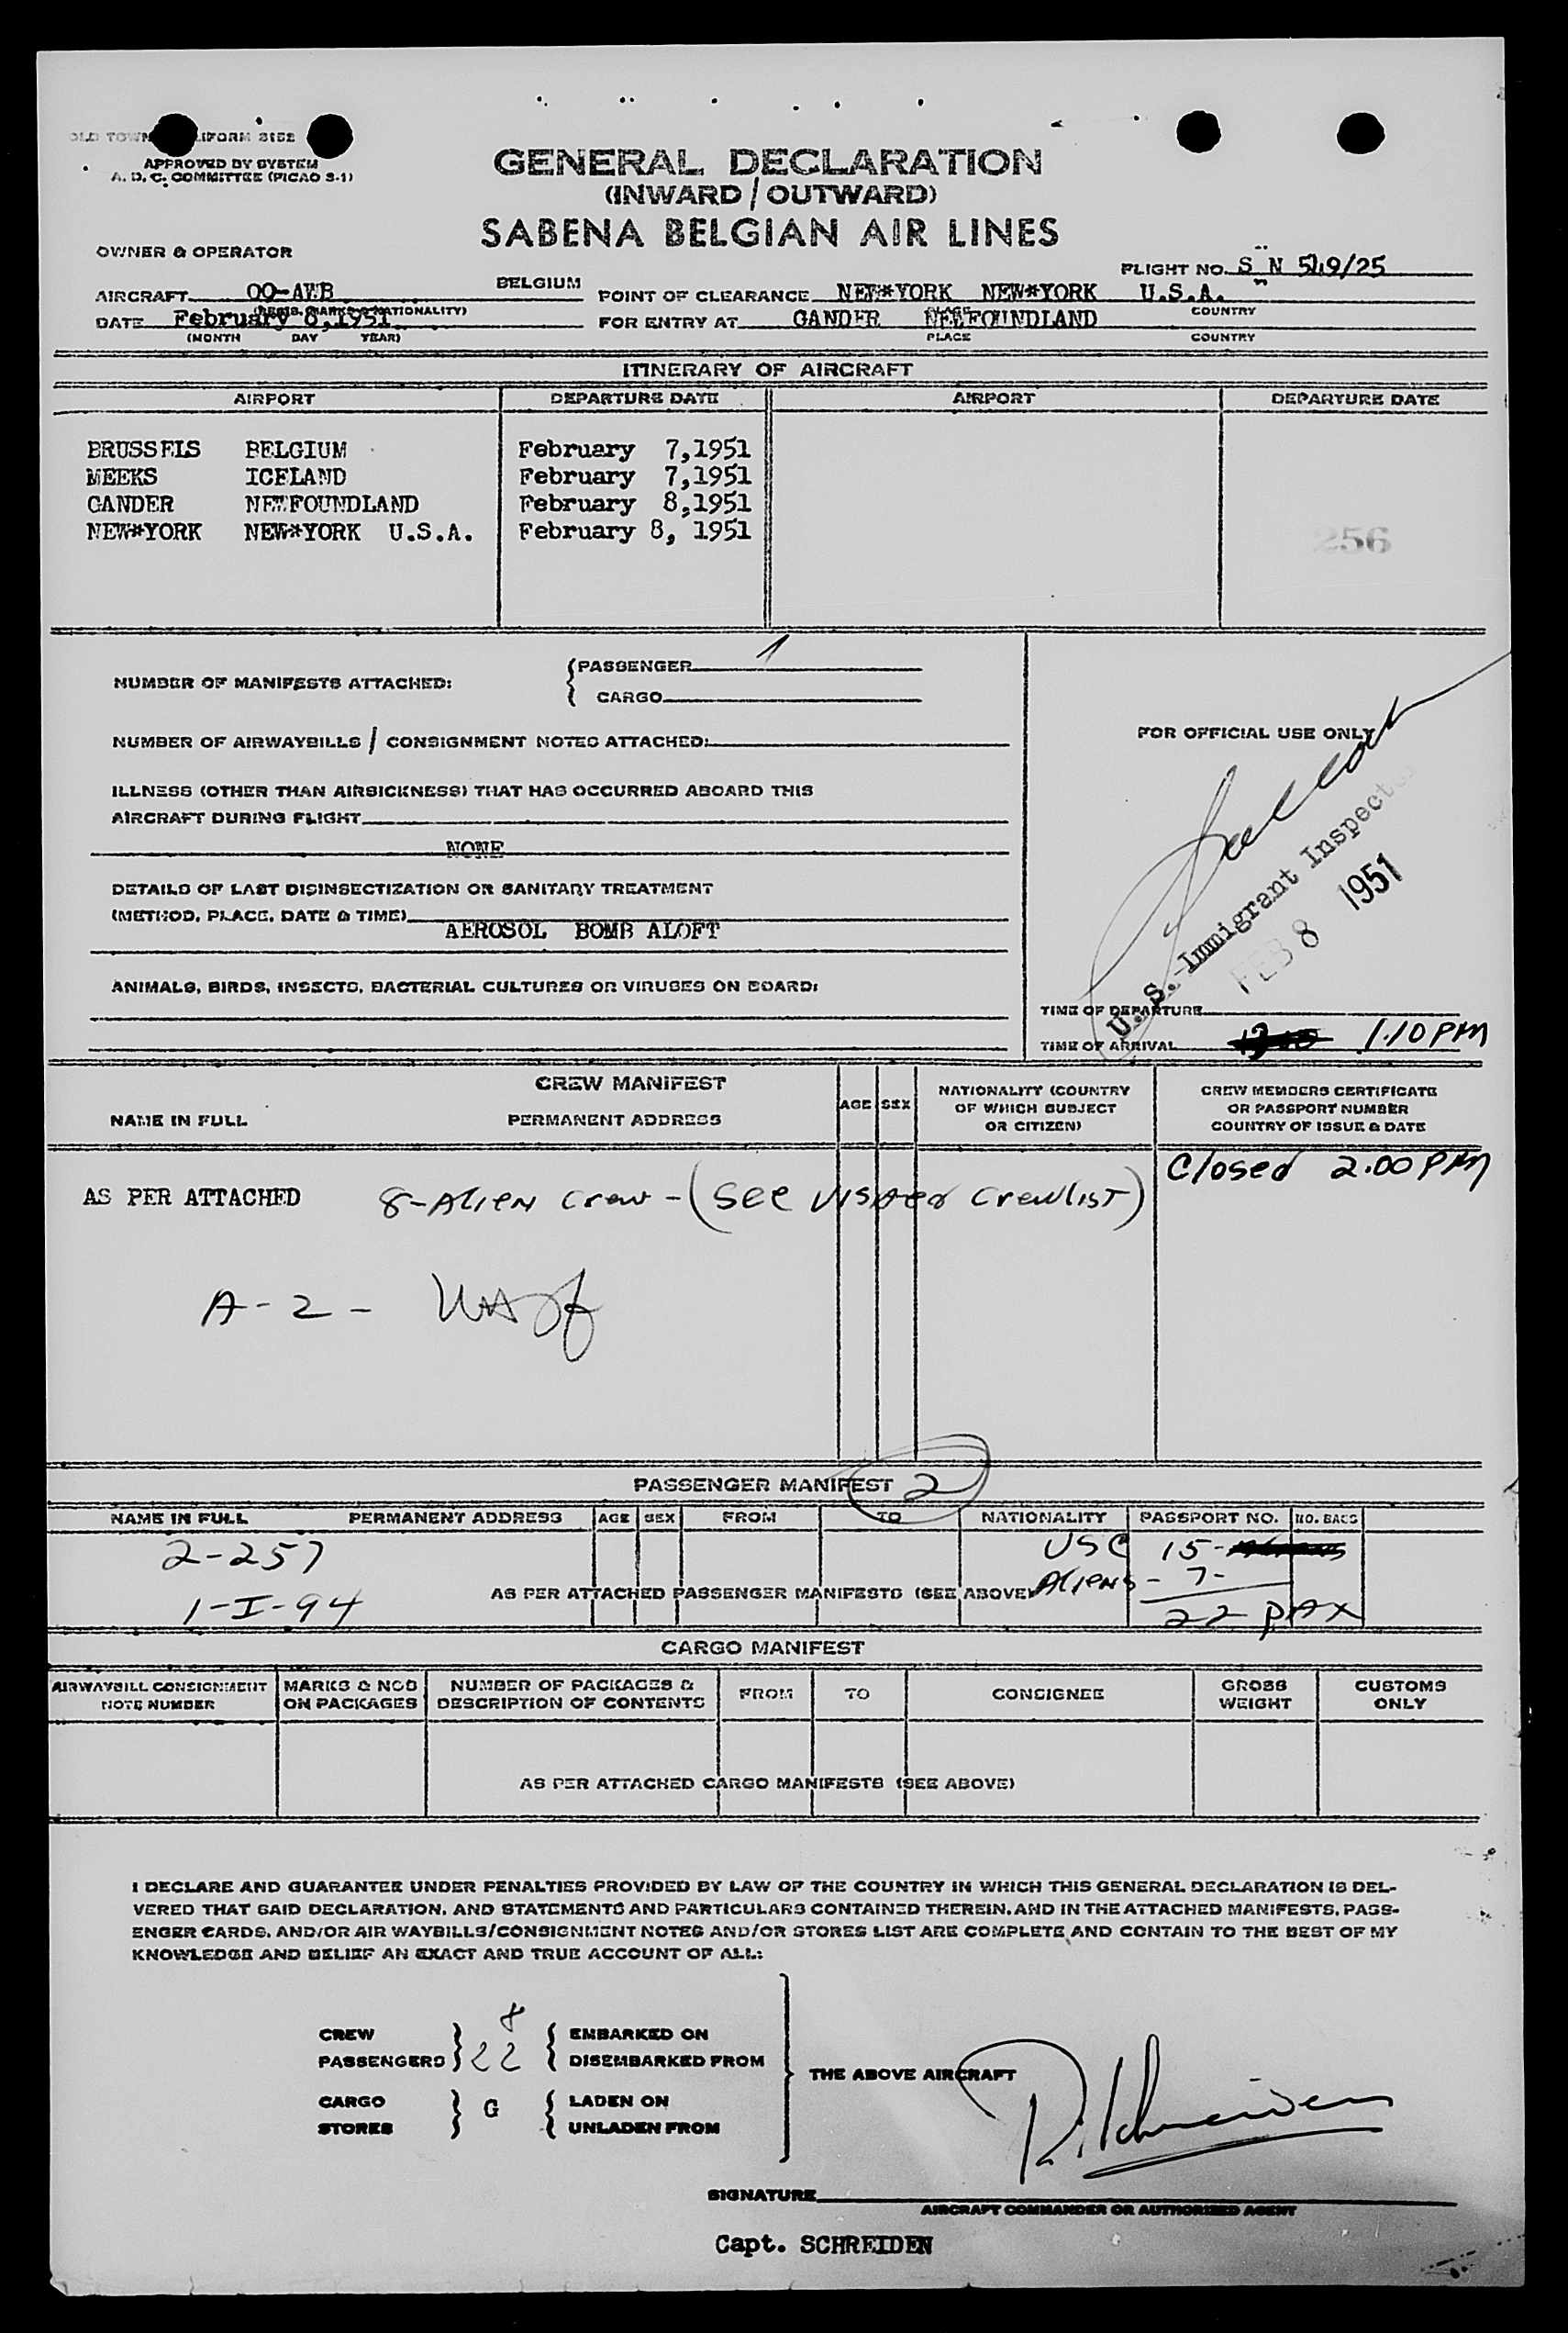 OLD TOWN UNIFORM SIZE
APPROVED BY SYSTEM
A. D. C. COMMITTEE (PICAO S-1)
GENERAL DECLARATION
(INWARD / OUTWARD)
SABENA BELGIAN AIR LINES
OWNER & OPERATOR
FLIGHT NO. S N 549/25
AIRCRAFT OO-AWB BELGIUM POINT OF CLEARANCE NEW*YORK NEW*YORK U.S.A.
(REGIS. MARKS & NATIONALITY) COUNTRY
DATE February 8,1951 FOR ENTRY AT GANDER NEWFOUNDLAND
(MONTH DAY YEAR) PLACE COUNTRY
ITINERARY OF AIRCRAFT
AIRPORT DEPARTURE DATE AIRPORT DEPARTURE DATE
BRUSSELS BELGIUM February 7,1951
MEEKS ICELAND February 7,1951
GANDER NEWFOUNDLAND February 8,1951
NEW*YORK NEW*YORK U.S.A. February 8, 1951
256
NUMBER OF MANIFESTS ATTACHED: PASSENGER 1
CARGO
FOR OFFICIAL USE ONLY
NUMBER OF AIRWAYBILLS / CONSIGNMENT NOTES ATTACHED:
ILLNESS (OTHER THAN AIRSICKNESS) THAT HAS OCCURRED ABOARD THIS
AIRCRAFT DURING FLIGHT
NONE
DETAILS OF LAST DISINSECTIZATION OR SANITARY TREATMENT
(METHOD, PLACE, DATE & TIME)
AEROSOL BOMB ALOFT
U. S. Immigrant Inspector
FEB 8 1951
ANIMALS, BIRDS, INSECTS, BACTERIAL CULTURES OR VIRUSES ON BOARD:
TIME OF DEPARTURE
TIME OF ARRIVAL 1.10 PM
CREW MANIFEST
NAME IN FULL PERMANENT ADDRESS AGE SEX NATIONALITY (COUNTRY OF WHICH SUBJECT OR CITIZEN) CREW MEMBERS CERTIFICATE OR PASSPORT NUMBER COUNTRY OF ISSUE & DATE
Closed 2.00 PM
AS PER ATTACHED 8-Alien Crew - (See Visaed Crewlist)
A-2-
PASSENGER MANIFEST 2
NAME IN FULL PERMANENT ADDRESS AGE SEX FROM TO NATIONALITY PASSPORT NO. NO. BAGS
2-257 USC 15-
1-I-94 AS PER ATTACHED PASSENGER MANIFESTS (SEE ABOVE) Aliens - 7-
22 PAX
CARGO MANIFEST
AIRWAYBILL CONSIGNMENT NOTE NUMBER MARKS & NOS ON PACKAGES NUMBER OF PACKAGES & DESCRIPTION OF CONTENTS FROM TO CONSIGNEE GROSS WEIGHT CUSTOMS ONLY
AS PER ATTACHED CARGO MANIFESTS (SEE ABOVE)
I DECLARE AND GUARANTEE UNDER PENALTIES PROVIDED BY LAW OF THE COUNTRY IN WHICH THIS GENERAL DECLARATION IS DEL-
VERED THAT SAID DECLARATION, AND STATEMENTS AND PARTICULARS CONTAINED THEREIN, AND IN THE ATTACHED MANIFESTS, PASS-
ENGER CARDS, AND/OR AIR WAYBILLS/CONSIGNMENT NOTES AND/OR STORES LIST ARE COMPLETE AND CONTAIN TO THE BEST OF MY
KNOWLEDGE AND BELIEF AN EXACT AND TRUE ACCOUNT OF ALL:
CREW 8 EMBARKED ON
PASSENGERS 22 DISEMBARKED FROM
THE ABOVE AIRCRAFT
CARGO G LADEN ON
STORES UNLADEN FROM
R. Schreiden
SIGNATURE
AIRCRAFT COMMANDER OR AUTHORIZED AGENT
Capt. SCHREIDEN